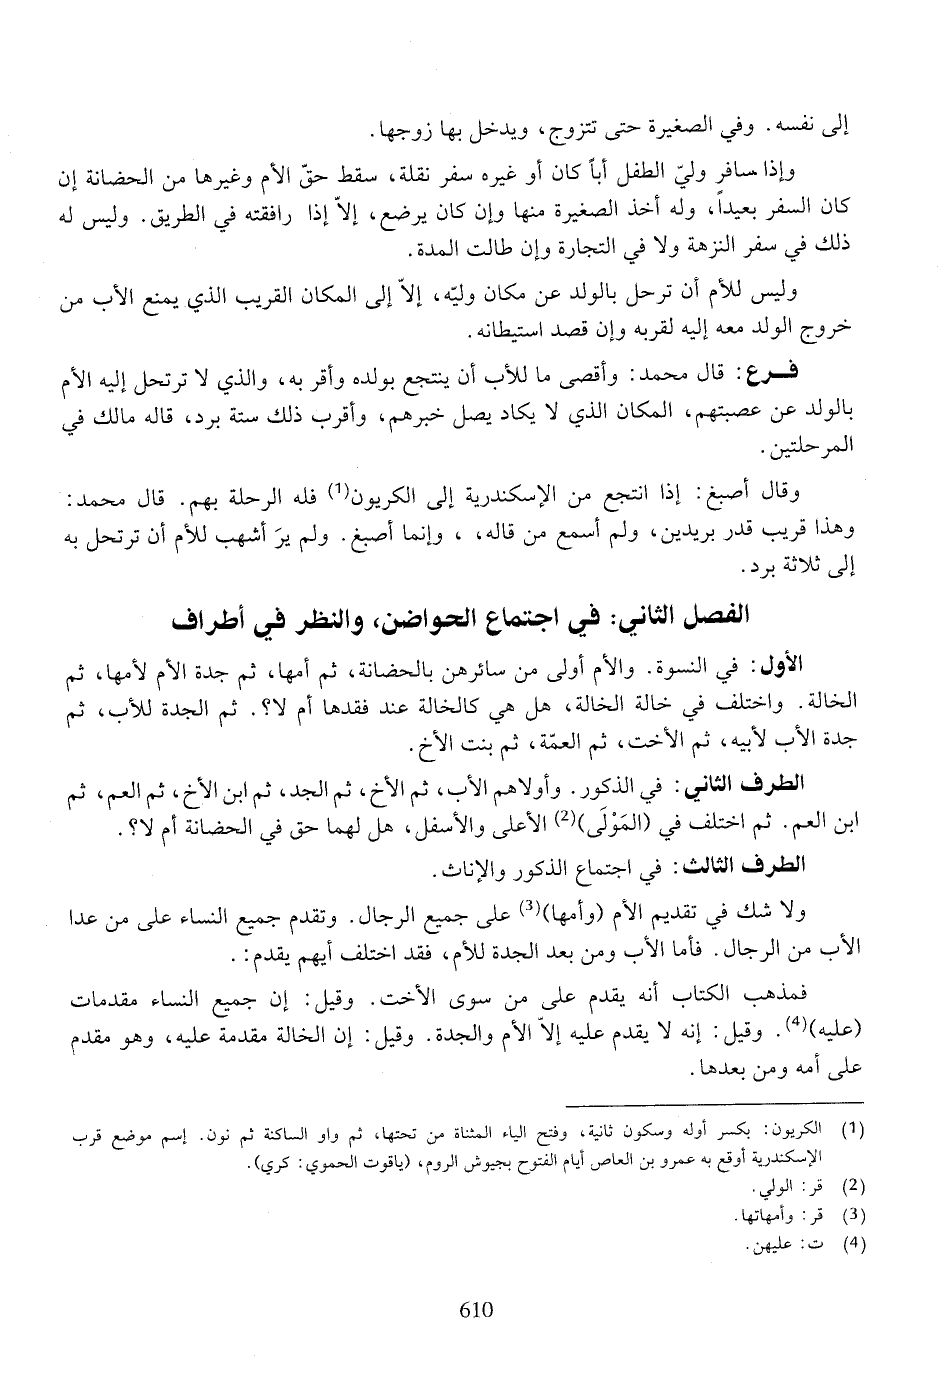 إلى نفسه. وفي الصغيرة حتى تتزوج، ويدخل بها زوجها.
وإذا سافر وليّ الطفل أباً كان أو غيره سفر نقلة، سقط حقّ الأم وغيرها من الحضانة إن
كان السفر بعيداً، وله أخذ الصغيرة منها وإن كان يرضع، إلاّ إذا رافقته في الطريق. وليس له
ذلك في سفر النزهة ولا في التجارة وإن طالت المدة.
وليس للأم أن ترحل بالولد عن مكان وليّه، إلاّ إلى المكان القريب الذي يمنع الأب من
خروج الولد معه إليه لقربه وإن قصد استيطانه.
فـرع: قال محمد: وأقصى ما للأب أن ينتجع بولده وأقر به، والذي لا ترتحل إليه الأم
بالولد عن عصبتهم، المكان الذي لا يكاد يصل خبرهم، وأقرب ذلك ستة برد، قاله مالك في
المرحلتين.
وقال أصبغ: إذا انتجع من الإسكندرية إلى الكريون(1) فله الرحلة بهم. قال محمد:
وهذا قريب قدر بريدين، ولم أسمع من قاله، ، وإنما أصبغ. ولم يرَ أشهب للأم أن ترتحل به
إلى ثلاثة برد.
الفصل الثاني: في اجتماع الحواضن، والنظر في أطراف
الأول: في النسوة. والأم أولى من سائرهن بالحضانة، ثم أمها، ثم جدة الأم لأمها، ثم
الخالة. واختلف في خالة الخالة، هل هي كالخالة عند فقدها أم لا؟. ثم الجدة للأب، ثم
جدة الأب لأبيه، ثم الأخت، ثم العمّة، ثم بنت الأخ.
الطرف الثاني: في الذكور. وأولاهم الأب، ثم الأخ، ثم الجد، ثم ابن الأخ، ثم العم، ثم
ابن العم. ثم اختلف في (المَوْلَى)(2) الأعلى والأسفل، هل لهما حق في الحضانة أم لا؟.
الطرف الثالث: في اجتماع الذكور والإناث.
ولا شك في تقديم الأم (وأمها)(3) على جميع الرجال. وتقدم جميع النساء على من عدا
الأب من الرجال. فأما الأب ومن بعد الجدة للأم، فقد اختلف أيهم يقدم: .
فمذهب الكتاب أنه يقدم على من سوى الأخت. وقيل: إن جميع النساء مقدمات
(عليه)(4). وقيل: إنه لا يقدم عليه إلاّ الأم والجدة. وقيل: إن الخالة مقدمة عليه، وهو مقدم
على أمه ومن بعدها.
(1) الكريون: بكسر أوله وسكون ثانية، وفتح الياء المثناة من تحتها، ثم واو الساكنة ثم نون. إسم موضع قرب
الإسكندرية أوقع به عمرو بن العاص أيام الفتوح بجيوش الروم، (ياقوت الحموي: كري).
(2) قر: الولي.
(3) قر: وأمهاتها.
(4) ت: عليهن.
610